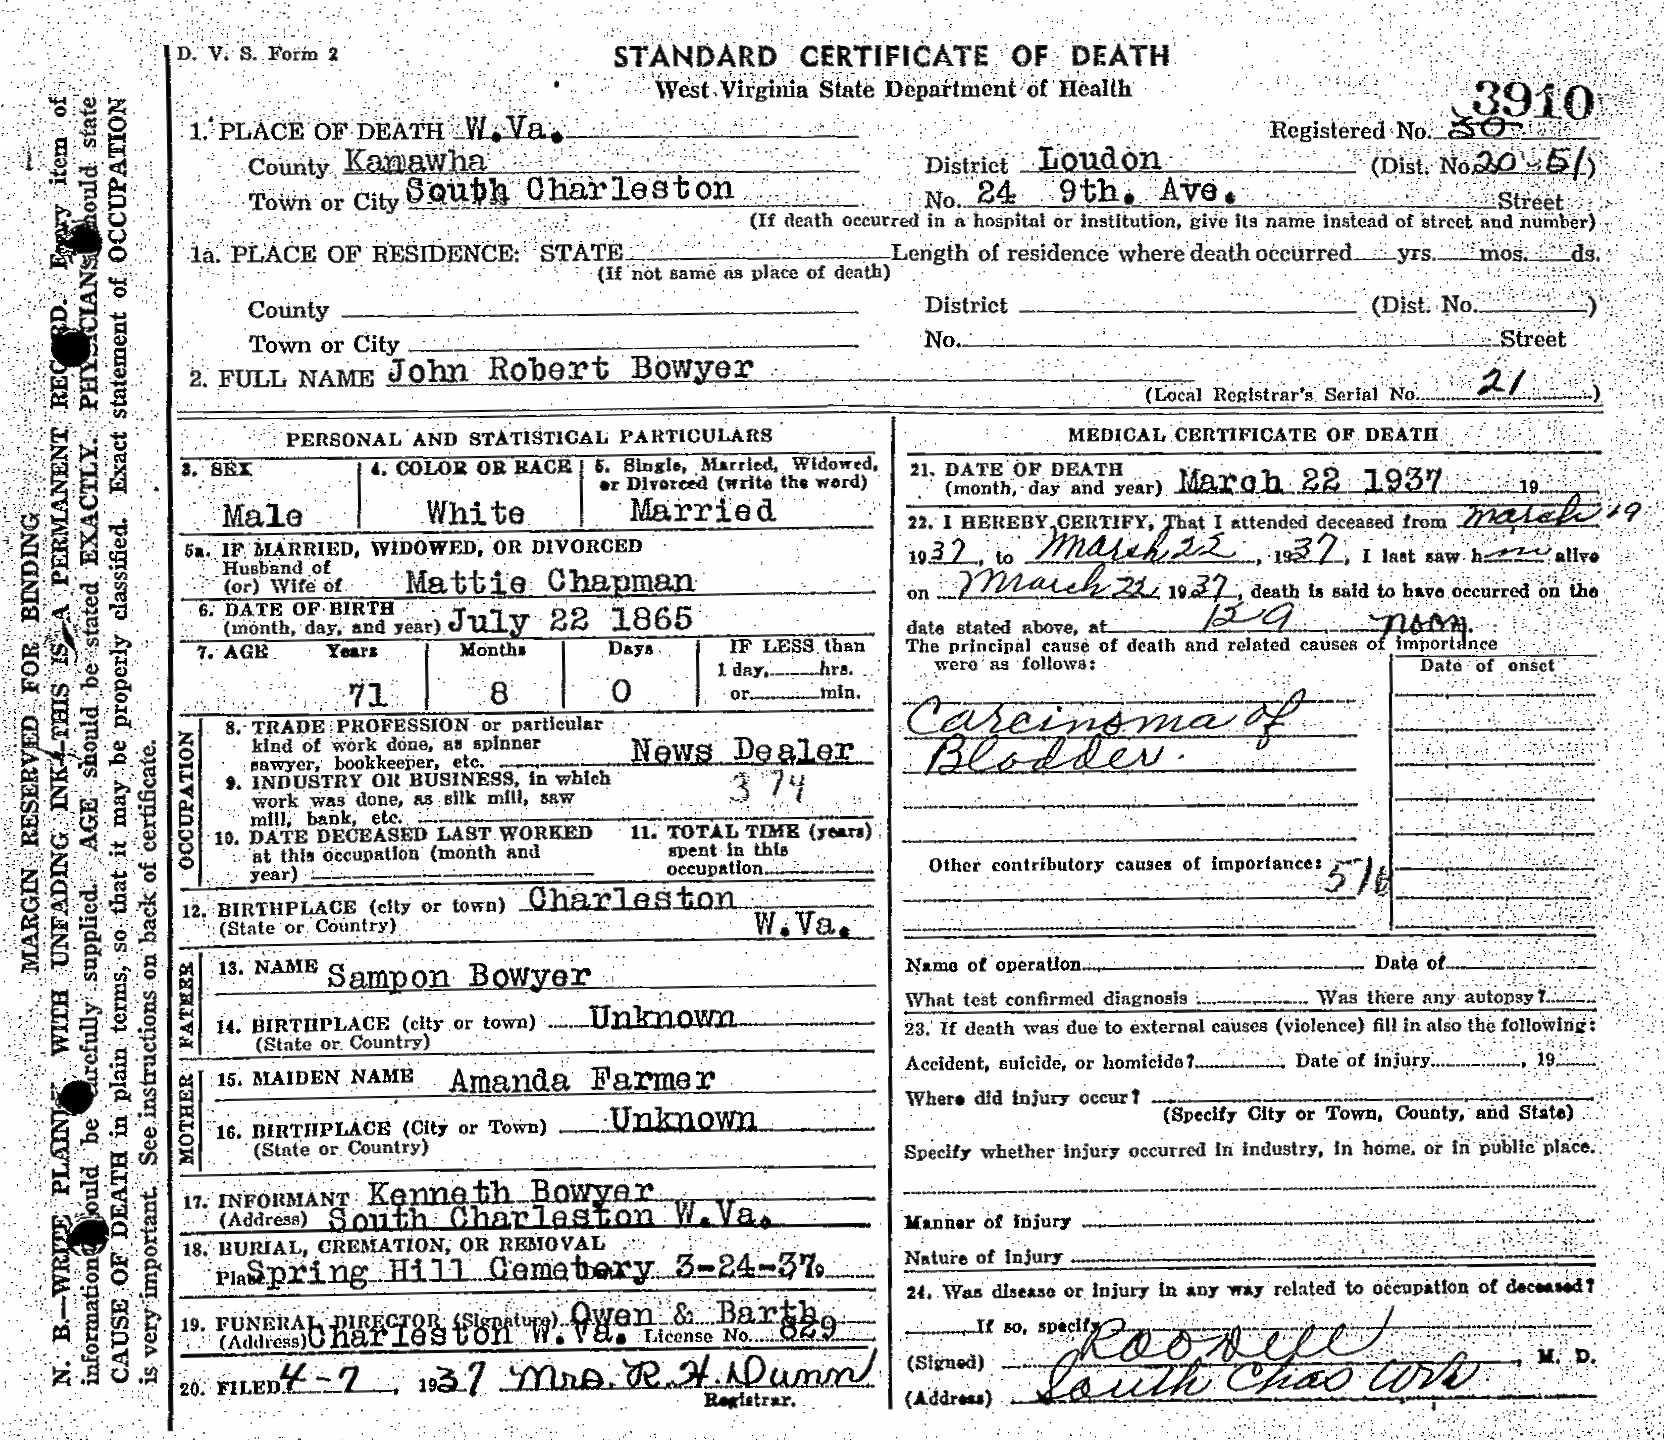 D. V. S. Form 2
STANDARD CERTIFICATE OF DEATH
West Virginia State Department of Health
3910
1. PLACE OF DEATH W.Va.
Registered No. 50
County Kanawha
District Loudon (Dist. No. 20-51)
Town or City South Charleston
No. 24 9th. Ave. Street
(If death occurred in a hospital or institution, give its name instead of street and number)
1a. PLACE OF RESIDENCE: STATE Length of residence where death occurred yrs. mos. ds.
(If not same as place of death)
County
District (Dist. No. )
Town or City
No. Street
2. FULL NAME John Robert Bowyer
(Local Registrar's Serial No. 21 )
PERSONAL AND STATISTICAL PARTICULARS
3. SEX
Male
4. COLOR OR RACE
White
5. Single, Married, Widowed,
or Divorced (write the word)
Married
5a. IF MARRIED, WIDOWED, OR DIVORCED
Husband of
(or) Wife of Mattie Chapman
6. DATE OF BIRTH
(month, day, and year) July 22 1865
7. AGE Years Months Days IF LESS than
1 day, hrs.
71 8 0 or min.
OCCUPATION
8. TRADE PROFESSION or particular
kind of work done, as spinner
sawyer, bookkeeper, etc. News Dealer
9. INDUSTRY OR BUSINESS, in which
work was done, as silk mill, saw
mill, bank, etc.
374
10. DATE DECEASED LAST WORKED
at this occupation (month and
year)
11. TOTAL TIME (years)
spent in this
occupation
12. BIRTHPLACE (city or town) Charleston
(State or Country) W.Va.
FATHER
13. NAME Sampon Bowyer
14. BIRTHPLACE (city or town) Unknown
(State or Country)
MOTHER
15. MAIDEN NAME Amanda Farmer
16. BIRTHPLACE (City or Town) Unknown
(State or Country)
17. INFORMANT Kenneth Bowyer
(Address) South Charleston W.Va.
18. BURIAL, CREMATION, OR REMOVAL
Place Spring Hill Cemetery 3-24-37.
19. FUNERAL DIRECTOR (Signature) Owen & Barth
(Address) Charleston W.Va. License No. 829
20. FILED 4-7, 1937 Mrs. R. H. Dunn
Registrar.
MEDICAL CERTIFICATE OF DEATH
21. DATE OF DEATH
(month, day and year) March 22 1937 19
22. I HEREBY CERTIFY, That I attended deceased from March 19
1937, to March 22, 1937, I last saw him alive
on March 22, 1937, death is said to have occurred on the
date stated above, at m.
The principal cause of death and related causes of importance
were as follows:
Date of onset
Carcinoma of
Bladder.
Other contributory causes of importance:
Name of operation Date of
What test confirmed diagnosis Was there any autopsy?
23. If death was due to external causes (violence) fill in also the following:
Accident, suicide, or homicide? Date of injury , 19
Where did injury occur?
(Specify City or Town, County, and State)
Specify whether injury occurred in industry, in home, or in public place.
Manner of injury
Nature of injury
24. Was disease or injury in any way related to occupation of deceased?
If so, specify
(Signed) , M. D.
(Address) South Chas
MARGIN RESERVED FOR BINDING
N. B.—WRITE PLAINLY WITH UNFADING INK—THIS IS A PERMANENT RECORD. Every item of
information should be carefully supplied. AGE should be stated EXACTLY. PHYSICIANS should state
CAUSE OF DEATH in plain terms, so that it may be properly classified. Exact statement of OCCUPATION
is very important. See instructions on back of certificate.